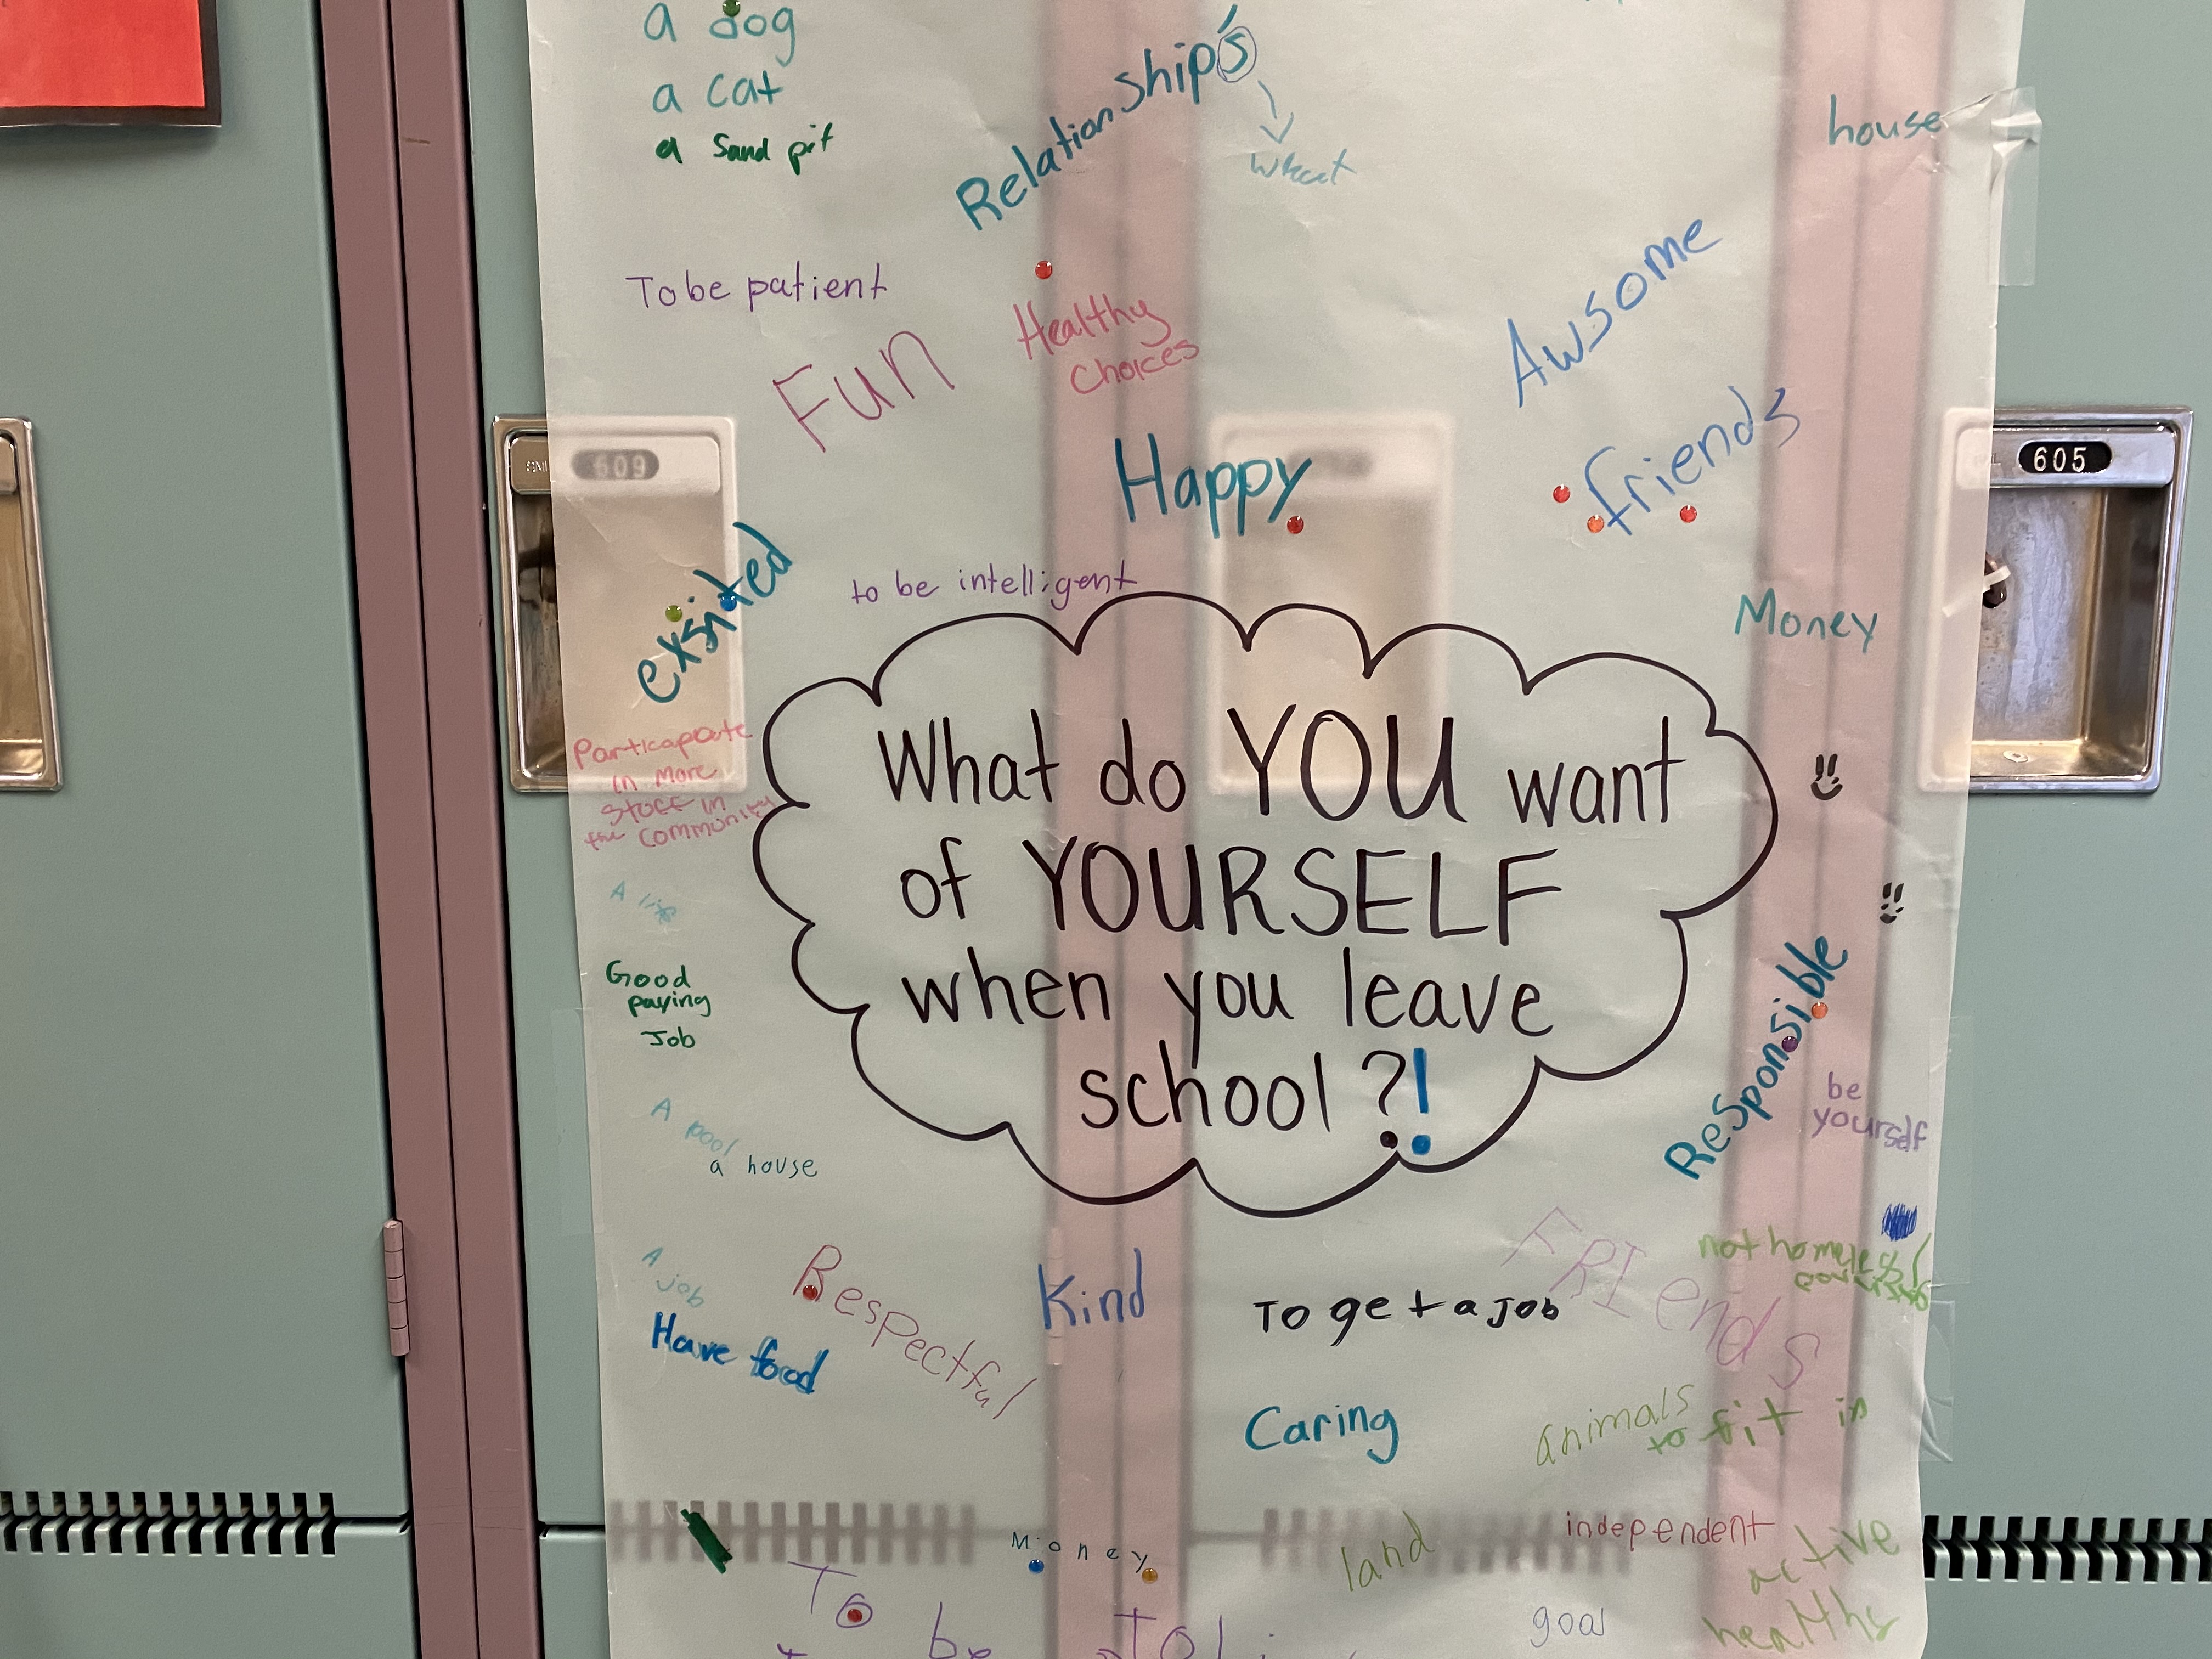 a dog
a cat
a Sand pit
Relationship's
what
house
To be patient
Fun
Healthy
Choices
Awsome
friends
Happy
609
605
exsited
to be intelligent
Money
Particapate
in more
stuff in
the community
What do YOU want
of YOURSELF
when you leave
school?!
A life
Good
paying
Job
A pool
a house
Responsible
be
yourself
A
job
Have food
Respectful
Kind
To get a job
FRIends
not homeless
Caring
animals
to fit in
Money
land
independent
active
healthy
goal
To be